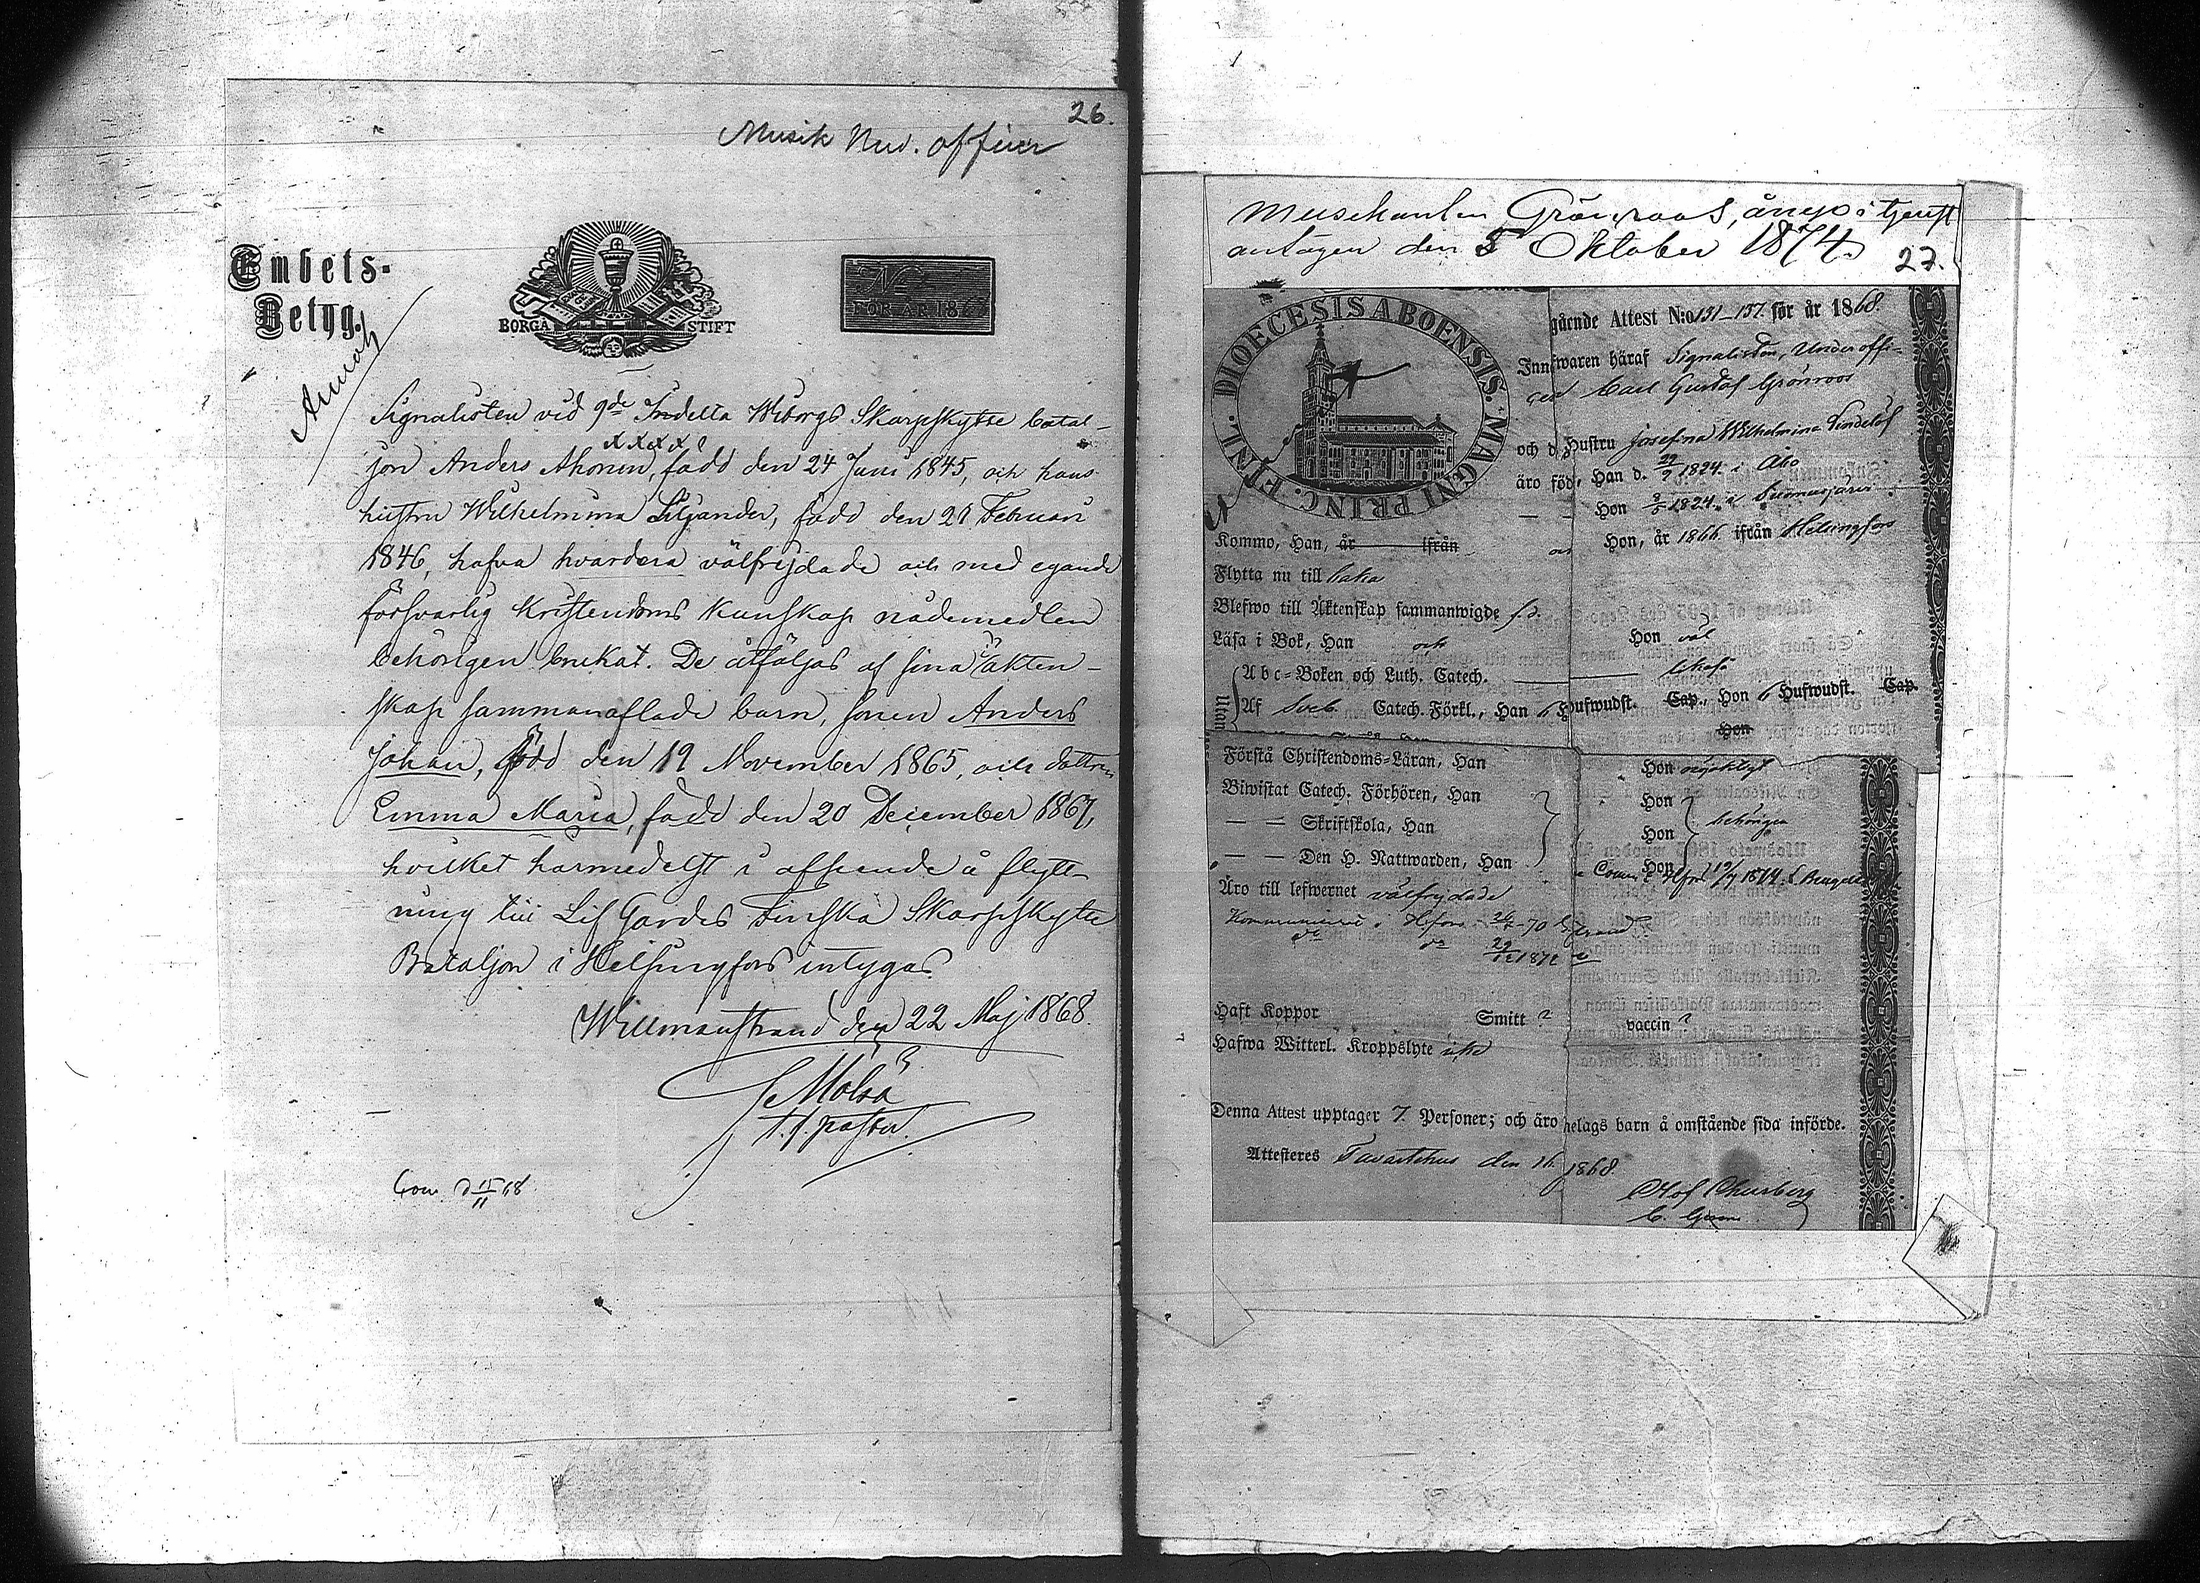 26.
Musik Und. officer
Embets-
Betyg.
BORGÅ STIFT
No
FÖR ÅR 186
Signalisten vid 9de Indelta Wiborgs Skarpskytte batal-
jon Anders Ahonen, född den 24 Juni 1845, och hans
hustru Wilhelmina Liljander, född den 21 Februari
1846, hafva hvardera välfrejdade och med egande
försvarlig Kristendoms kunskap nådemedlen
behörigen brukat. De åtföljas af sina i äkten-
skap sammanaflade barn, sonen Anders
Johan, född den 19 November 1865, och dottren
Emma Maria, född den 20 December 1867,
hvilket härmedelst i afseende å flytt-
ning till Lif Gardes Finska Skarpskytte
Bataljon i Helsingfors intygas.
Willmanstrand den 22 Maj 1868.
Molsa
t. f. pastor.
Com. d 15/11 68.
Musikanten Grönroos, å nyo i tjenst
antagen den 5 Oktober 1874.
27.
DIOECESIS ABOENSIS. MAGNI PRINC. FINL.
gående Attest N:o 131–137. för år 1868.
Innehwaren häraf Signalisten, Underoffi-
ceren Carl Gustaf Grönroos
och d. Hustru Josefina Wilhelmina Lindelöf
äro född, Han d. 29/9 1824 i Åbo
— — Hon 8/5 1824 i Suomusjärvi.
Kommo, Han, år ifrån Hon, år 1866 ifrån Helsingfors
Flytta nu till baka
Blefwo till Äktenskap sammanwigde f. d.
Läsa i Bok, Han och Hon väl
Utan
Abc-Boken och Luth. Catech. likaså
Af Sveb. Catech. Förkl., Han 6 Hufwudst. Cap., Hon 6 Hufwudst. Cap.
Hon
Förstå Christendoms-Läran, Han Hon nöjaktigt
Biwistat Catech. Förhören, Han Hon
— — Skriftskola, Han Hon behörigen
— — Den H. Nattwarden, Han Hon
Äro till lefwernet välfrejdade
Haft Koppor Smitt? vaccin?
Hafwa Witterl. Kroppslyte icke
Denna Attest upptager 7. Personer; och äro helags barn å omstående sida införde.
Attesteres Tavastehus den 16. 1868.